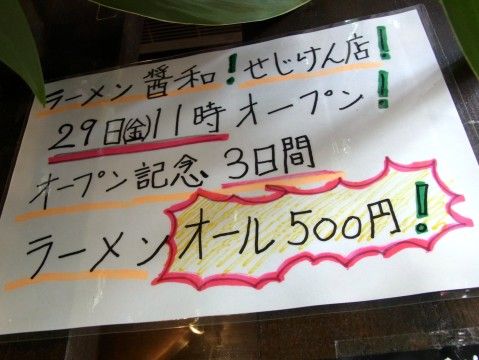 ラーメン醬和!せじけん店!
29日㈮11時オープン!
オープン記念 3日間
ラーメンオール500円!